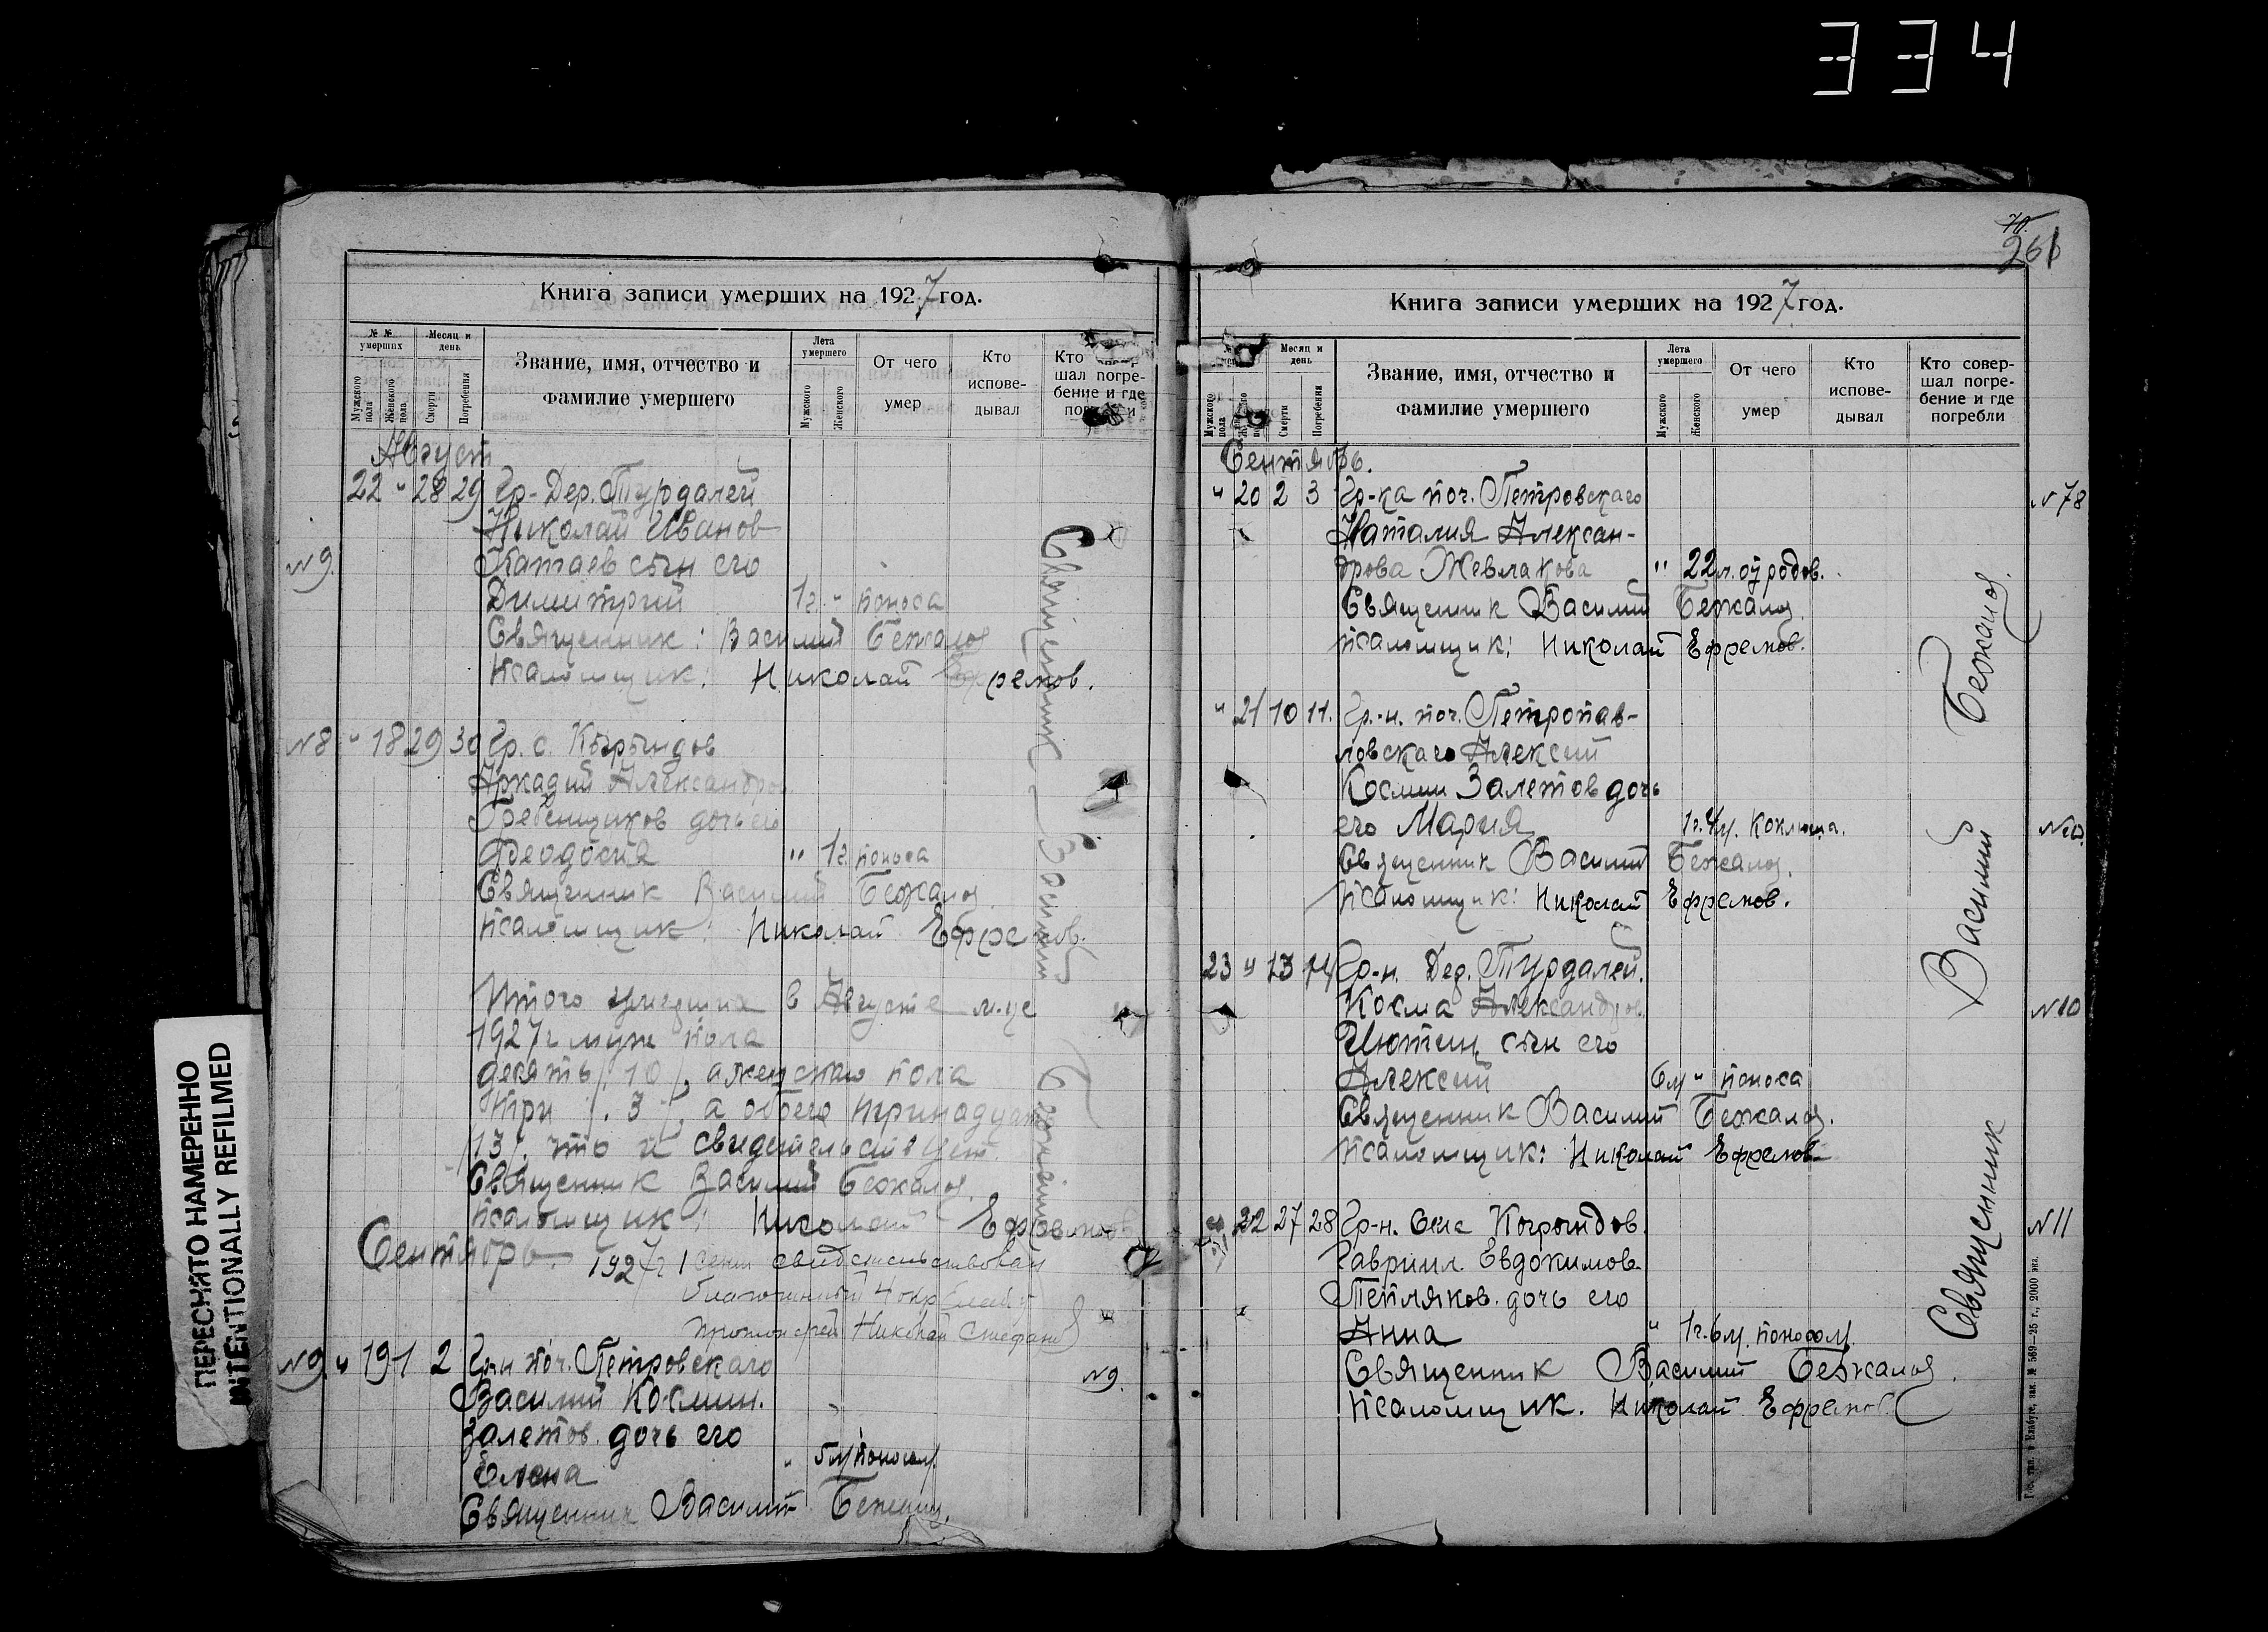 334
ПЕРЕСНЯТО НАМЕРЕННО
INTENTIONALLY REFILMED
Книга записи умерших на 1927 год.
№ № умерших
Мужского пола
Женского пола
Месяц и день
Смерти
Погребения
Звание, имя, отчество и фамилие умершего
Лета умершего
Мужского
Женского
От чего умер
Кто исповедывал
Кто
шал погре-
бение и где
Август
22 " 28 29 Гр-Дер. Турдалей
Николай Иванов
№9. Катаев сын его
Димитрий 1г. " поноса
Священник: Василий Бежанов
Псаломщик: Николай Ефремов.
№8 " 18 29 30 Гр. с. Кырындов
Аркадий Александров
Гребенщиков дочь его
Феодосия " 1г. поноса
Священник Василий Бежанов.
Псаломщик: Николай Ефремов.
Итого умерших в Августе м-це
1927 г муж пола
десять /.10/, а женскаго пола
три /.3/, а обоего тринадцать
/13/. что и свидетельствует.
Священник Василий Бежанов.
Псаломщик: Николай Ефремов
Сентябрь. 1927г 1 сент свидетельствовал
Благочинный 4 окр
протоиерей Николай Стефанов
№9. " 19 1 2 Гр-н поч. Петровскаго
№9.
Василий Космин.
Залетов. дочь его
Елена " 5м поносом.
Священник Василий Бежанов.
Священник Василий Бежанов
70.
261
Книга записи умерших на 1927 год.
Мужского пола
Месяц и день
Смерти
Погребения
Звание, имя, отчество и фамилие умершего
Лета умершего
Мужского
Женского
От чего умер
Кто исповедывал
Кто совер-
шал погре-
бение и где
погребли
Сентябрь.
" 20 2 3 Гр-ка поч. Петровскаго №78
Наталия Алексан-
дрова Жевлакова " 22л. от родов.
Священник Василий Бежанов.
Псаломщик: Николай Ефремов.
" 21 10 11. Гр.-н. поч. Петропав-
ловскаго Алексий
Космин Залетов дочь
его Мария 1г.4м. Коклюша.
Священник Василий Бежанов.
Псаломщик: Николай Ефремов.
23 " 13 14 Гр-н. Дер. Турдалей.
Косма Александров №10
сын его
Алексий 6м " поноса
Священник Василий Бежанов.
Псаломщик: Николай Ефремов
22 27 28 Гр-н. Села Кырындов. №11
Гавриил. Евдокимов
Тепляков. дочь его
Анна " 1г.6м. поносом.
Священник Василий Бежанов.
Псаломщик. Николай Ефремов.
Священник Василий Бежанов.
Гос. тип. в Елабуге, зак. № 569—25 г., 2000 экз.